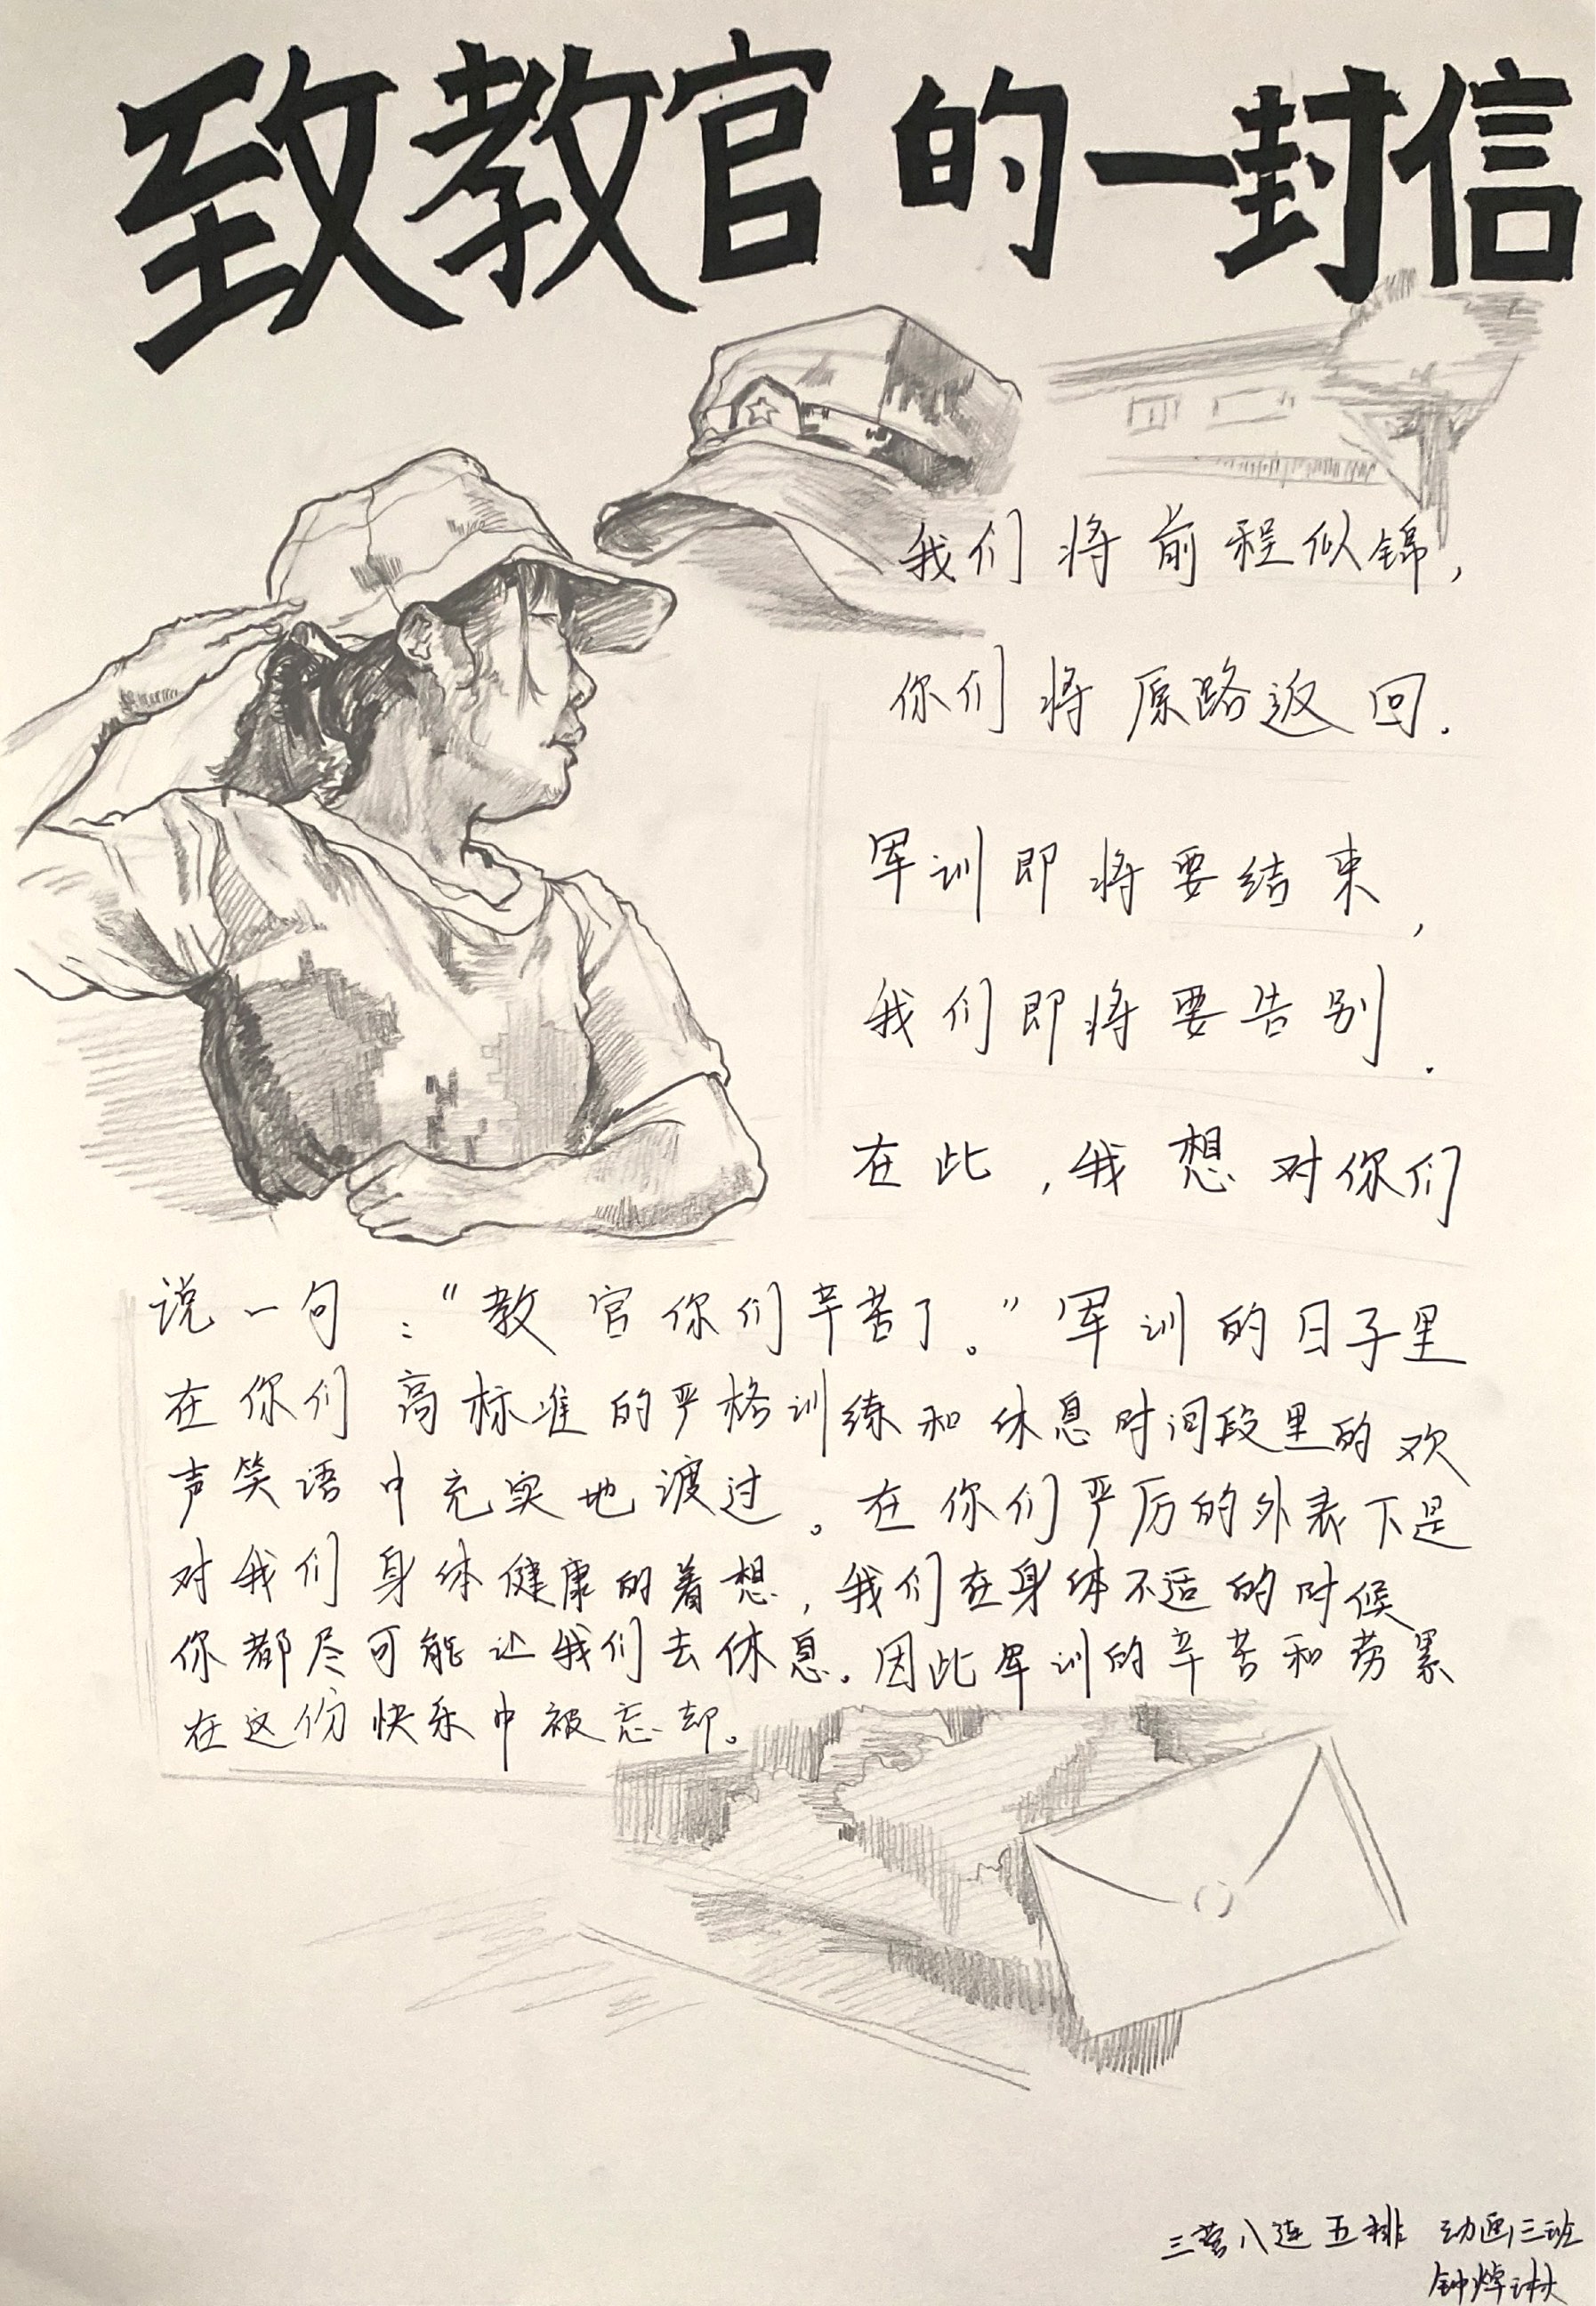 致教官的一封信
我们将前程似锦,
你们将原路返回.
军训即将要结束,
我们即将要告别.
在此,我想对你们
说一句:“教官你们辛苦了。”军训的日子里
在你们高标准的严格训练和休息时间段里的欢
声笑语中充实地渡过。在你们严厉的外表下是
对我们身体健康的着想,我们在身体不适的时候
你都尽可能让我们去休息。因此军训的辛苦和劳累
在这份快乐中被忘却。
三营八连五排 动画三班
钟